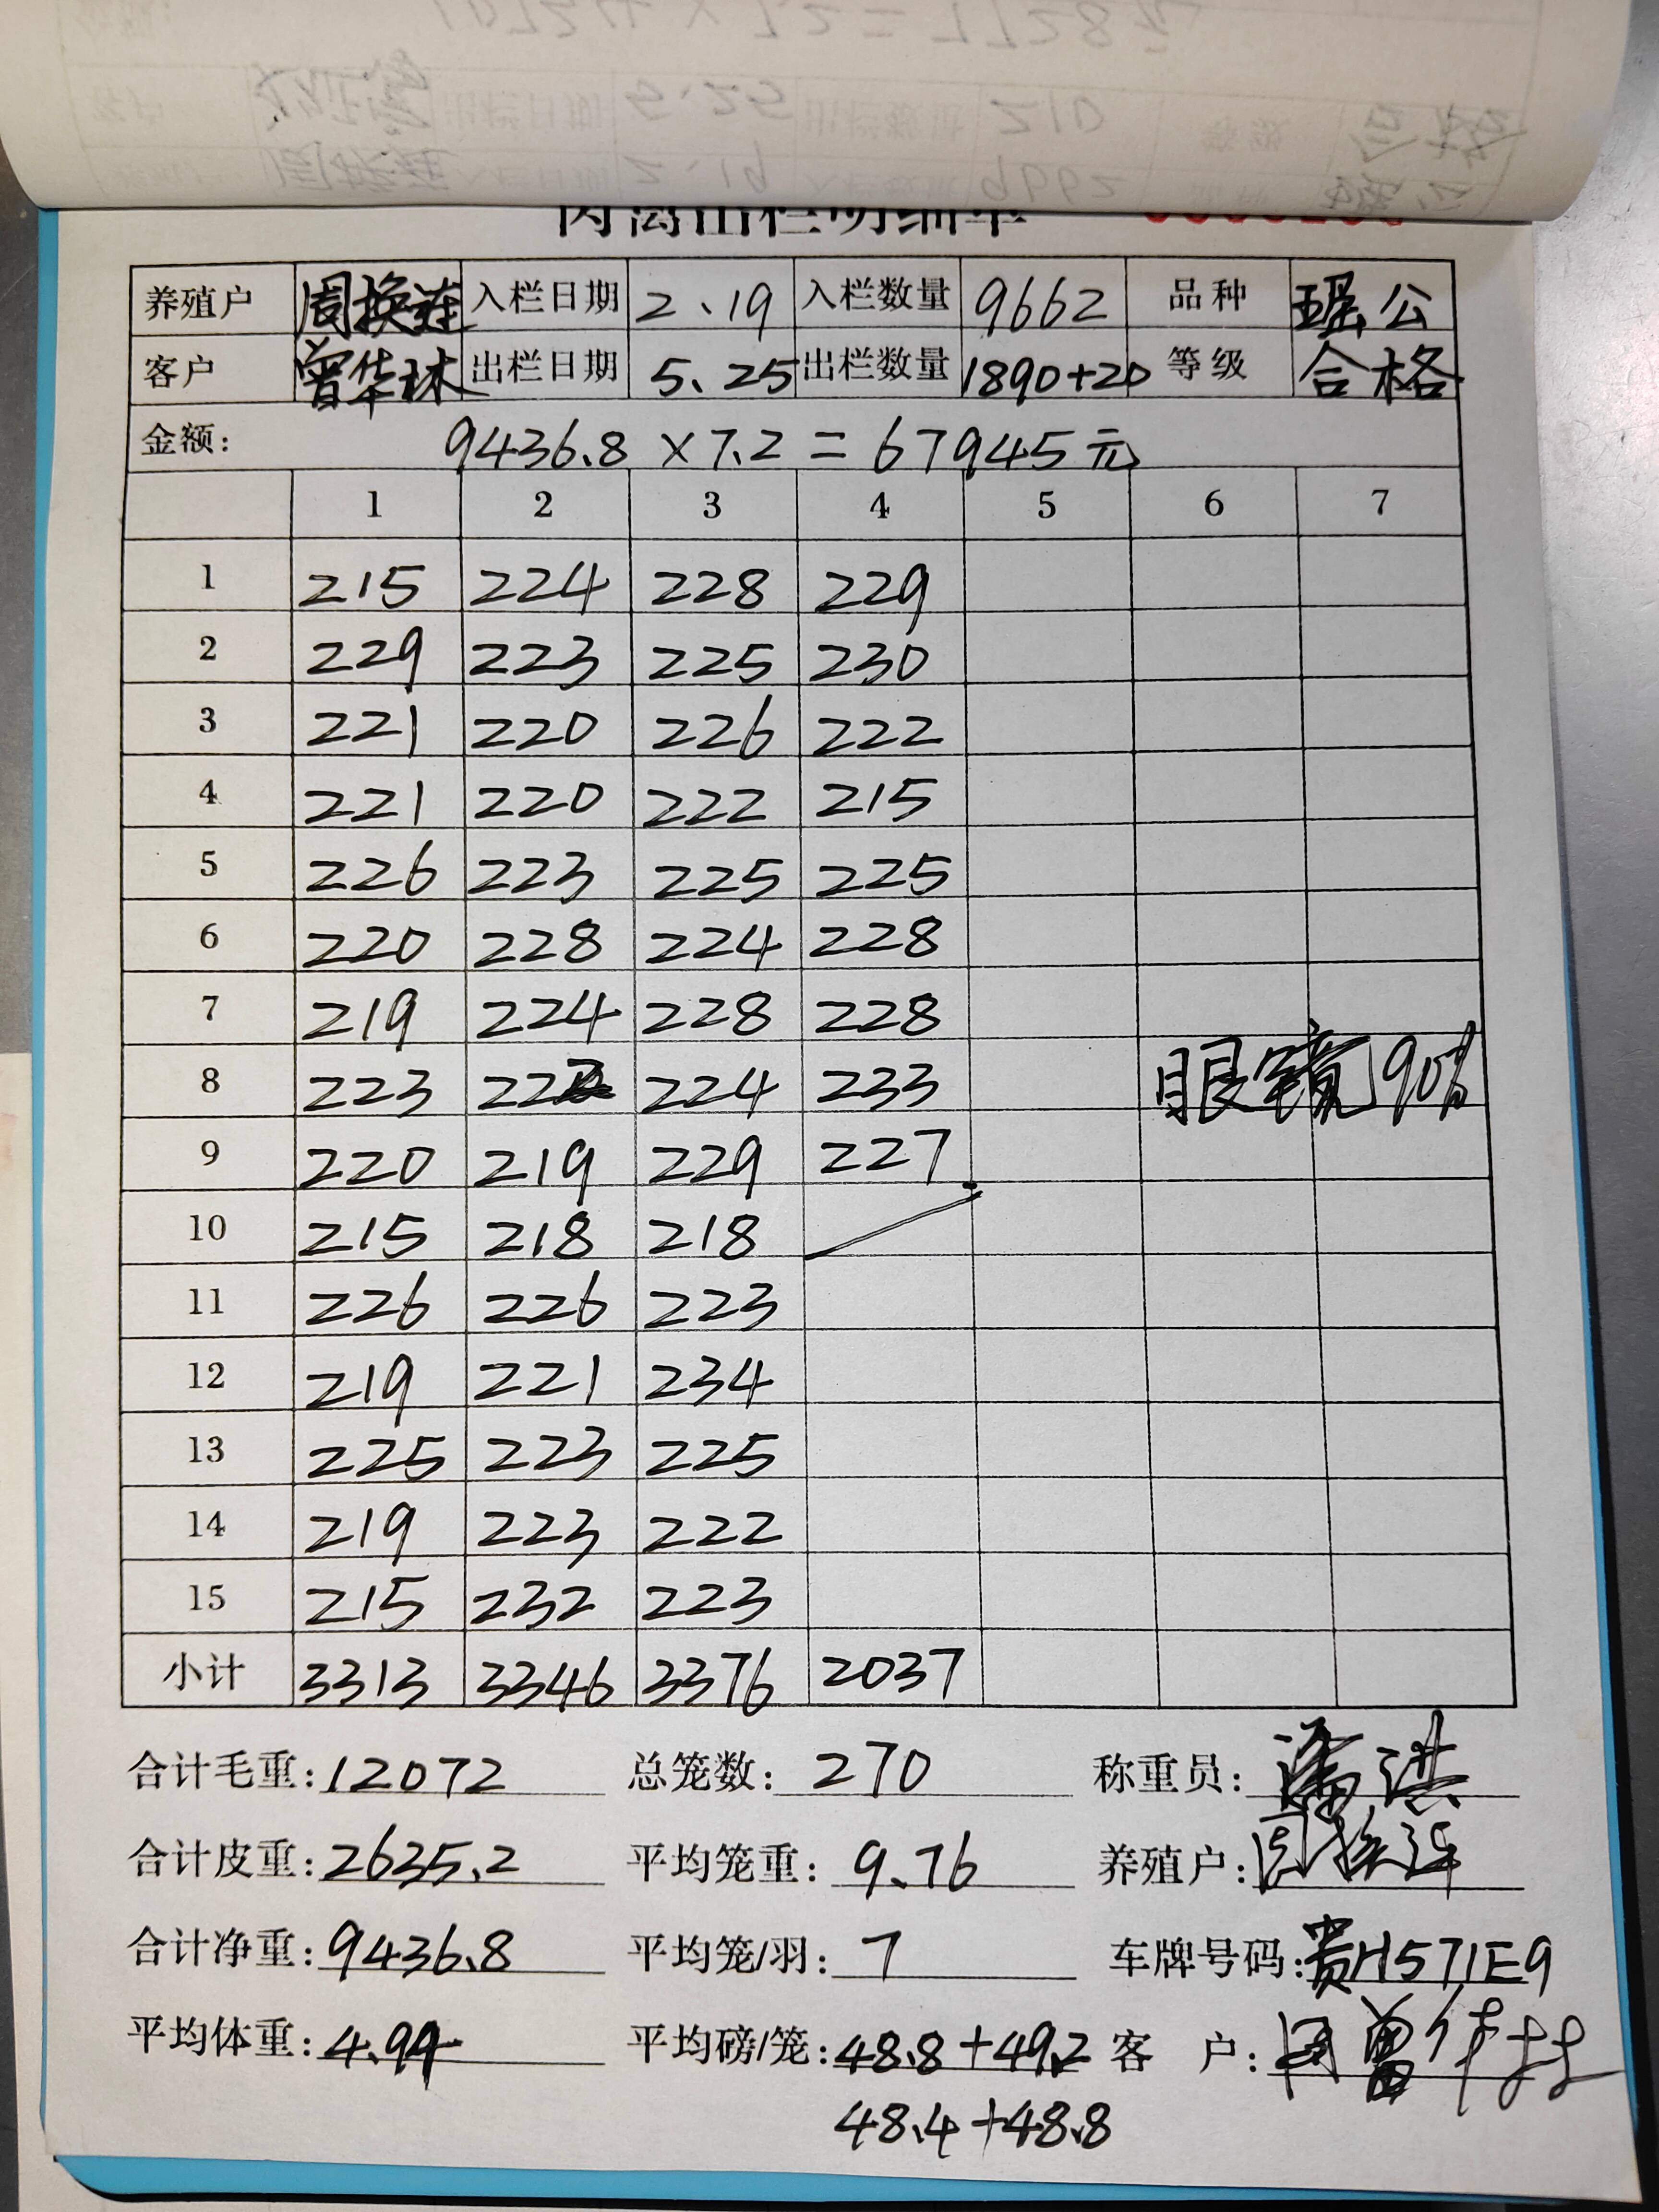 肉禽出栏明细单
养殖户 周换连 入栏日期 2、19 入栏数量 9662 品种 瑶公
客户 曾华林 出栏日期 5、25 出栏数量 1890+20 等级 合格
金额: 9436.8 × 7.2 = 67945元
1 2 3 4 5 6 7
1 215 224 228 229
2 229 223 225 230
3 221 220 226 222
4 221 220 222 215
5 226 223 225 225
6 220 228 224 228
7 219 224 228 228
8 223 222 224 233 眼镜90%
9 220 219 229 227
10 215 218 218
11 226 226 223
12 219 221 234
13 225 223 225
14 219 223 222
15 215 232 223
小计 3313 3346 3376 2037
合计毛重: 12072 总笼数: 270 称重员: 潘洪
合计皮重: 2635.2 平均笼重: 9.76 养殖户: 周换连
合计净重: 9436.8 平均笼/羽: 7 车牌号码: 贵H571E9
平均体重: 4.94 平均磅/笼: 48.8+49.2 客 户:
48.4+48.8